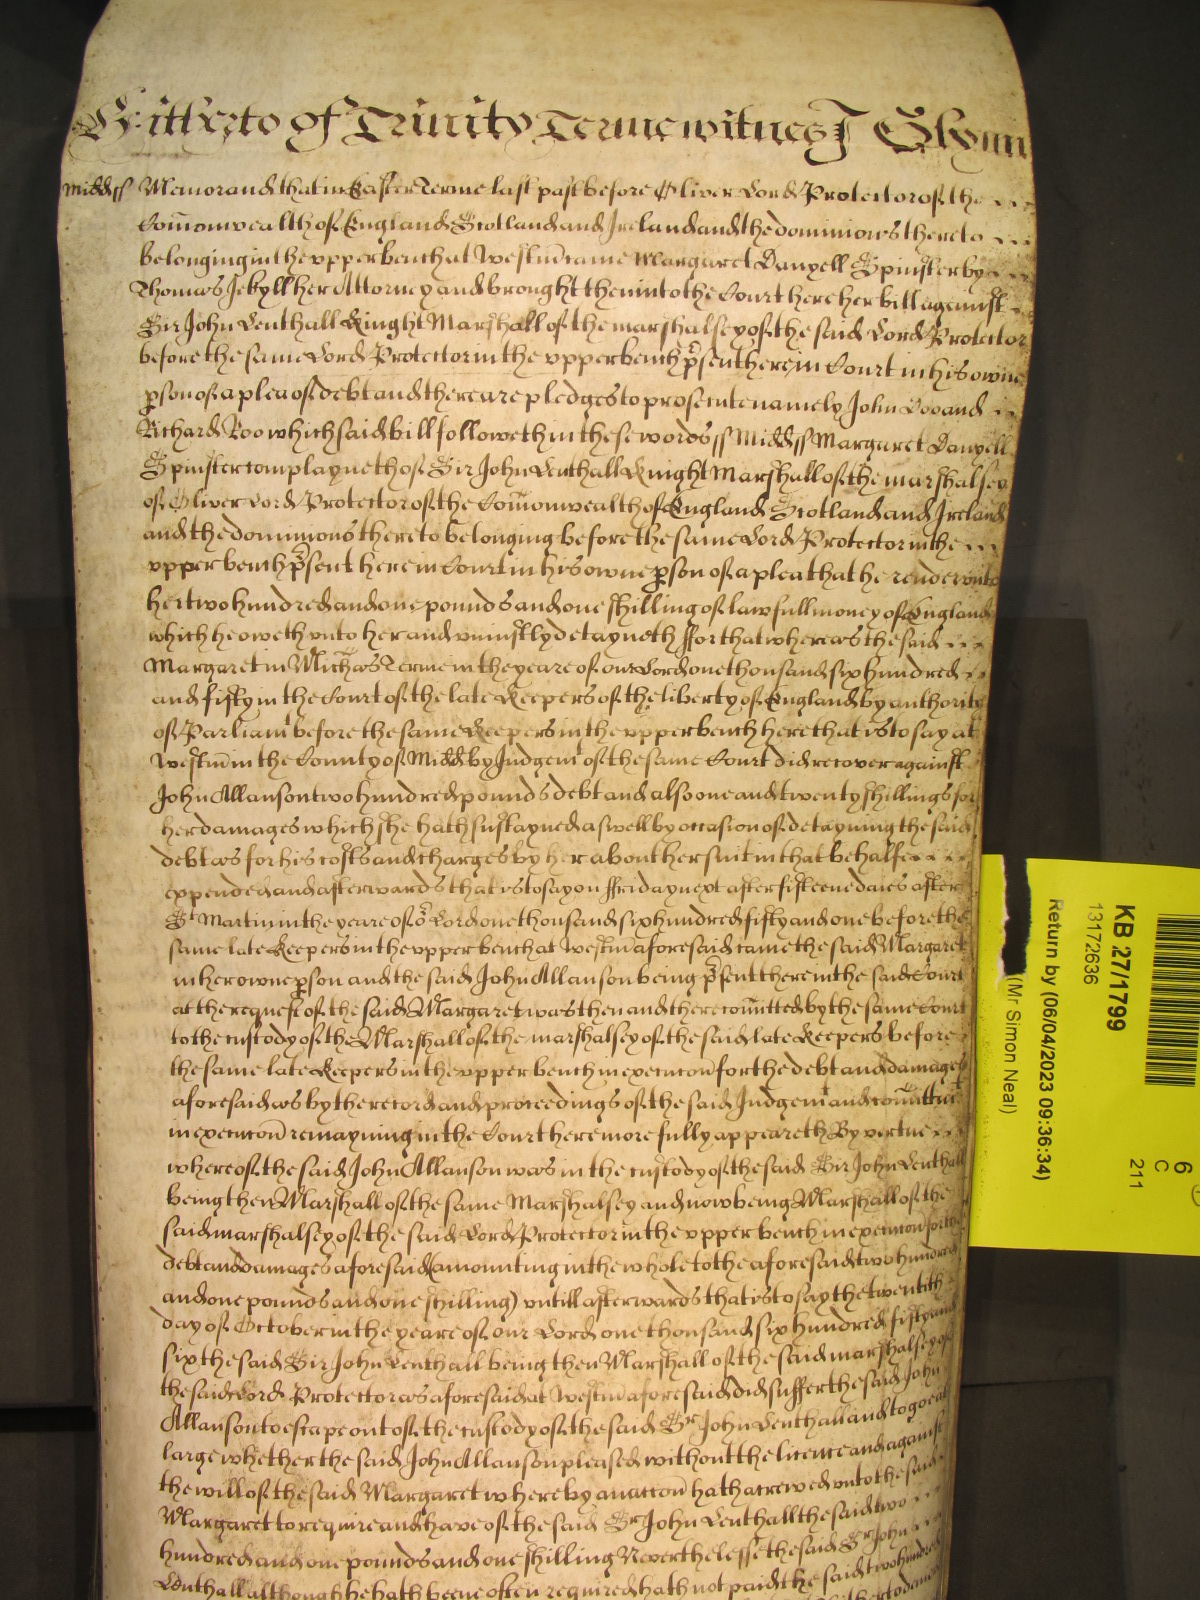 Hitherto of Trinity Terme witnes J Glynn
Midds ss Memorand that in Easter Terme last past before Oliver Lord Protector of the
Com̄onwealth of England Scotland and Ireland and the dominions thereto
belonging in the vpper bench at Westm̄ came Margaret Danyell Spinster by
Thomas Jekyll her Attorney and brought then into the Court here her bill against
Sir John Lenthall Knight Marshall of the marshalsey of the said Lord Protector
before the same Lord Protector in the vpper bench p̄sent here in Court in his owne
pson of a plea of debt and there are pledges to prosecute namely John Doo and
Richard Roo which said bill followeth in these words ss Midds ss Margaret Danyell
Spinster complayneth of Sir John Lenthall Knight Marshall of the marshalsey
of Oliver Lord Protector of the Com̄onwealth of England Scotland and Ireland
and the dominions thereto belonging before the same Lord Protector in the
vpper bench p̄sent here in Court in his owne pson of a plea that he render vnto
her two hundred and one pounds and one shilling of lawfull money of England
which he oweth vnto her and vniustly detayneth ffor that whereas the said
Margaret in Mich̄as Terme in the yeare of our Lord one thousand six hundred
and fifty in the Court of the late Keepers of the liberty of England by authority
of Parliamt before the same Keepers in the vpper bench here that is to say at
Westm̄ in the County of Midd by Judgemt of the same Court did recover against
John Allanson two hundred pounds debt and also one and twenty shillings for
her damages which she hath sustayned aswell by occasion of detayning the said
debt as for his costs and charges by her about her suit in that behalfe
expended and afterwards that is to say on ffriday next after fifteene daies after
St Martin in the yeare of or Lord one thousand six hundred fifty and one before the
same late Keepers in the vpper bench at Westm̄ aforesaid came the said Margaret
in her owne pson and the said John Allanson being p̄sent there in the said Court
at the request of the said Margaret was then and there com̄itted by the same Court
to the custody of the Marshall of the marshalsey of the said late Keepers before
the same late Keepers in the vpper bench in execucon̄ for the debt and damages
aforesaid as by the record and proceedings of the said Judgemt and com̄ittur
in execucon̄ remayning in the Court here more fully appeareth By vertue
whereof the said John Allanson was in the custody of the said Sir John Lenthall
being then Marshall of the same Marshalsey and now being Marshall of the
said marshalsey of the said Lord Protector in the vpper bench in execucon for the
debt and damages aforesaid (amounting in the whole to the aforesaid two hundred
and one pounds and one shilling) vntill afterwards that is to say the twentith
day of October in the yeare of our Lord one thousand six hundred fifty and
six the said Sir John Lenthall being then Marshall of the said marshalsey of
the said Lord Protector as aforesaid at Westm̄ aforesaid did suffer the said John
Allanson to escape out of the custody of the said Sr John Lenthall and to goe at
large whether the said John Allanson pleased without the licence and against
the will of the said Margaret whereby an accon̄ hath accrewed vnto the said
Margaret to require and have of the said Sr John Lenthall the said two
hundred and one pounds and one shilling Neverthelesse the said Sr John
Lenthall although he hath beene often required hath not paid the said two hundred
KB 27/1799
13172636
Return by (06/04/2023 09:36:34)
(Mr Simon Neal)
6
C
211